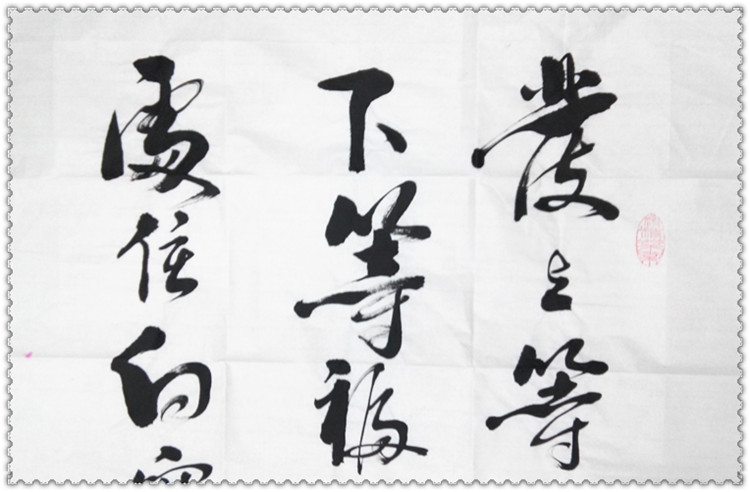 發上等
下等福
處住向